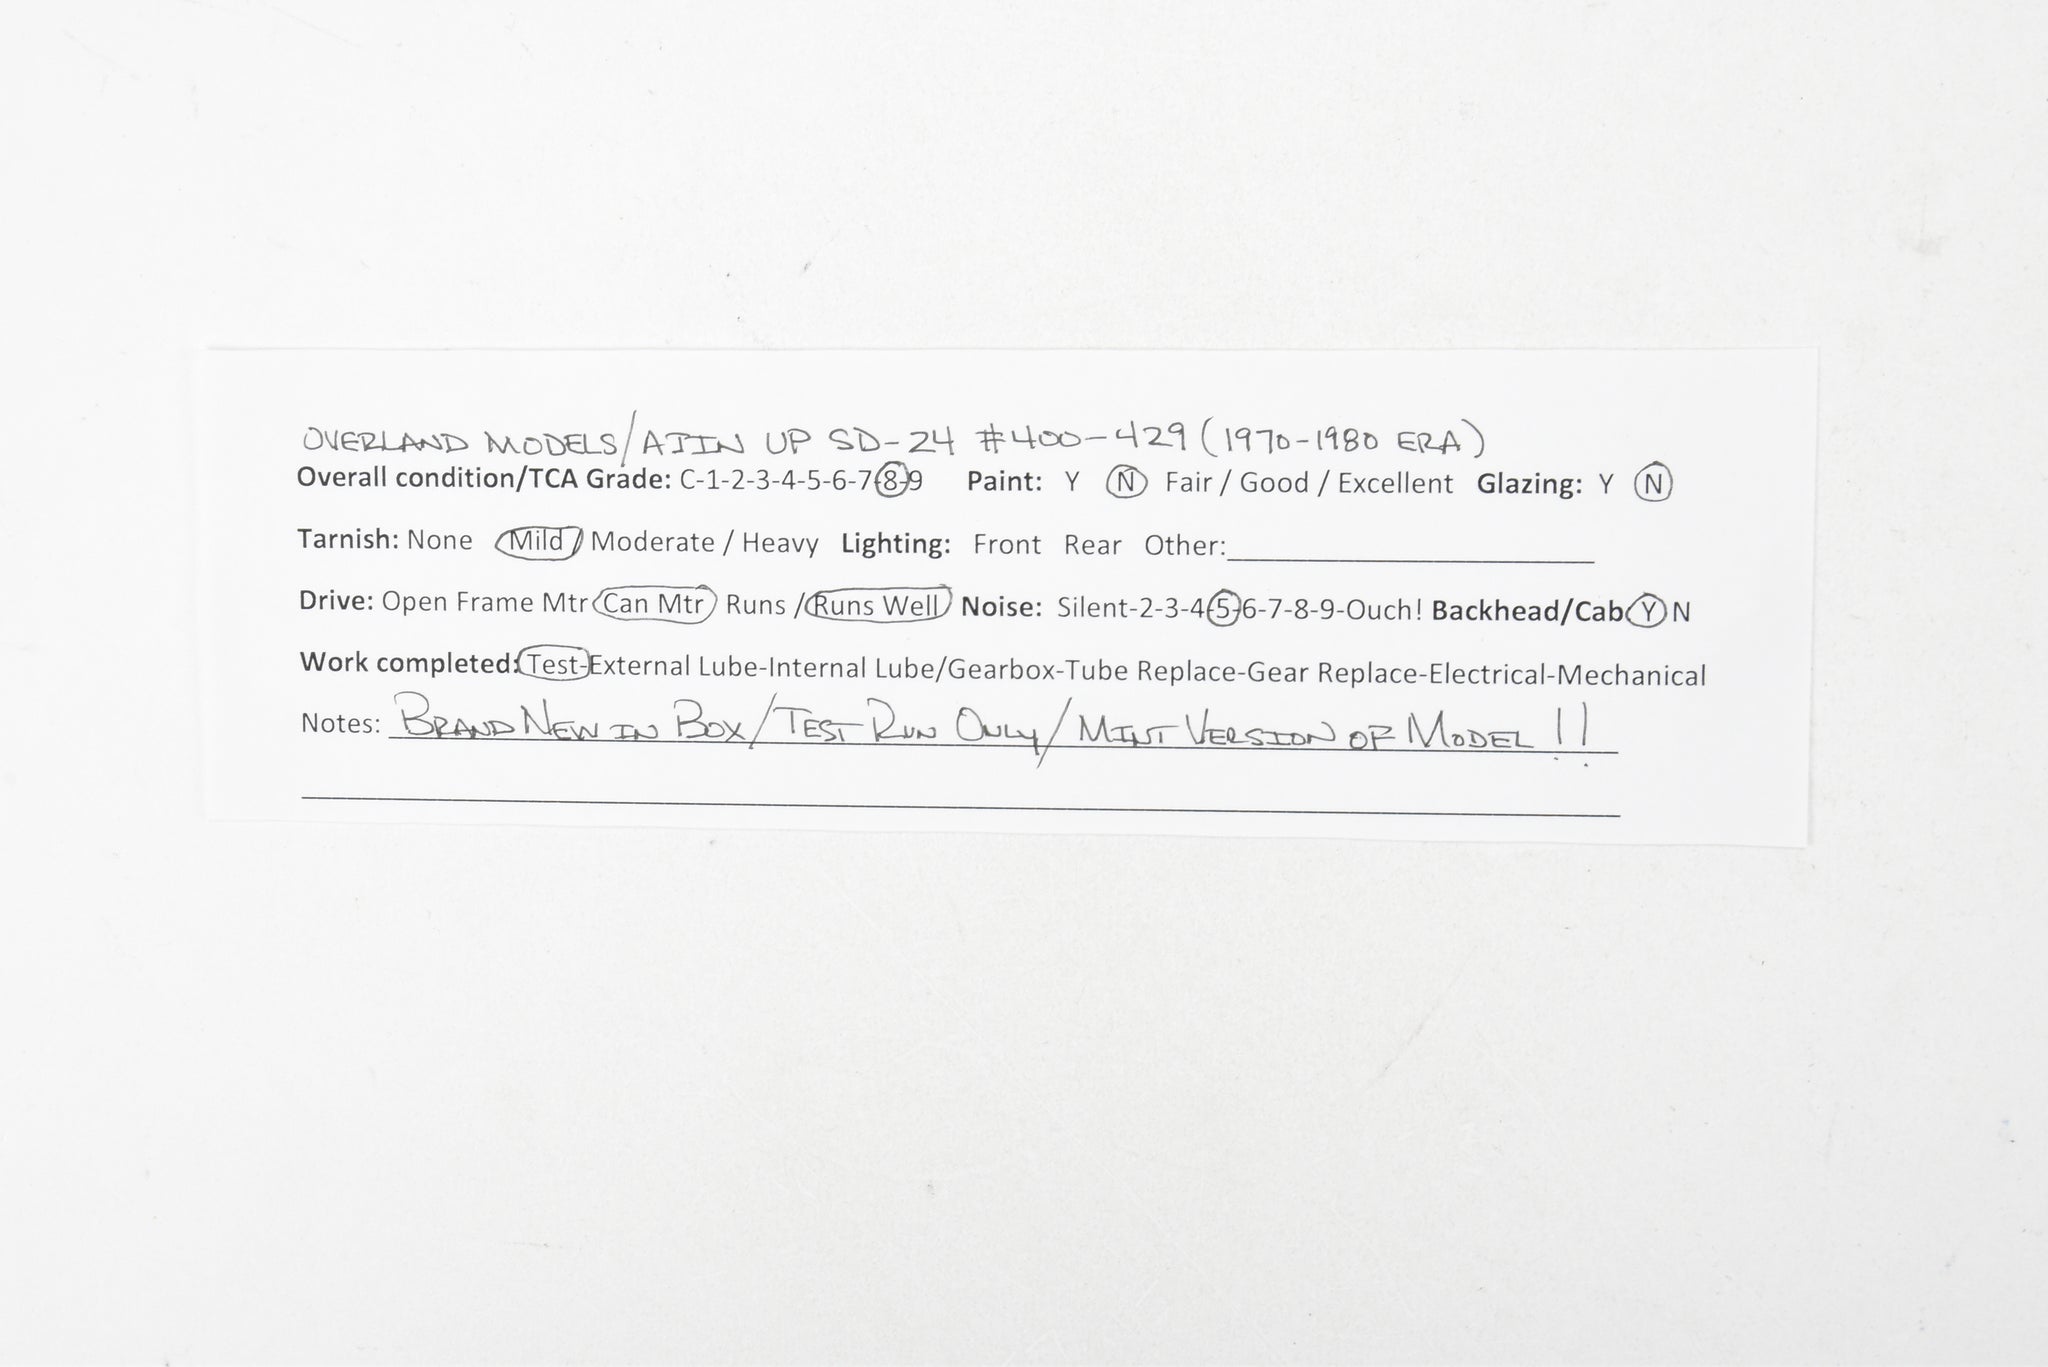 OVERLAND MODELS/AJIN UP SD-24 #400-429 (1970-1980 ERA)
Overall condition/TCA Grade: C-1-2-3-4-5-6-7-8-9 Paint: Y N Fair / Good / Excellent Glazing: Y N
Tarnish: None Mild / Moderate / Heavy Lighting: Front Rear Other:
Drive: Open Frame Mtr Can Mtr Runs / Runs Well Noise: Silent-2-3-4-5-6-7-8-9-Ouch! Backhead/Cab Y N
Work completed: Test-External Lube-Internal Lube/Gearbox-Tube Replace-Gear Replace-Electrical-Mechanical
Notes: BRAND NEW IN BOX/TEST RUN ONLY/MINT VERSION OF MODEL!!